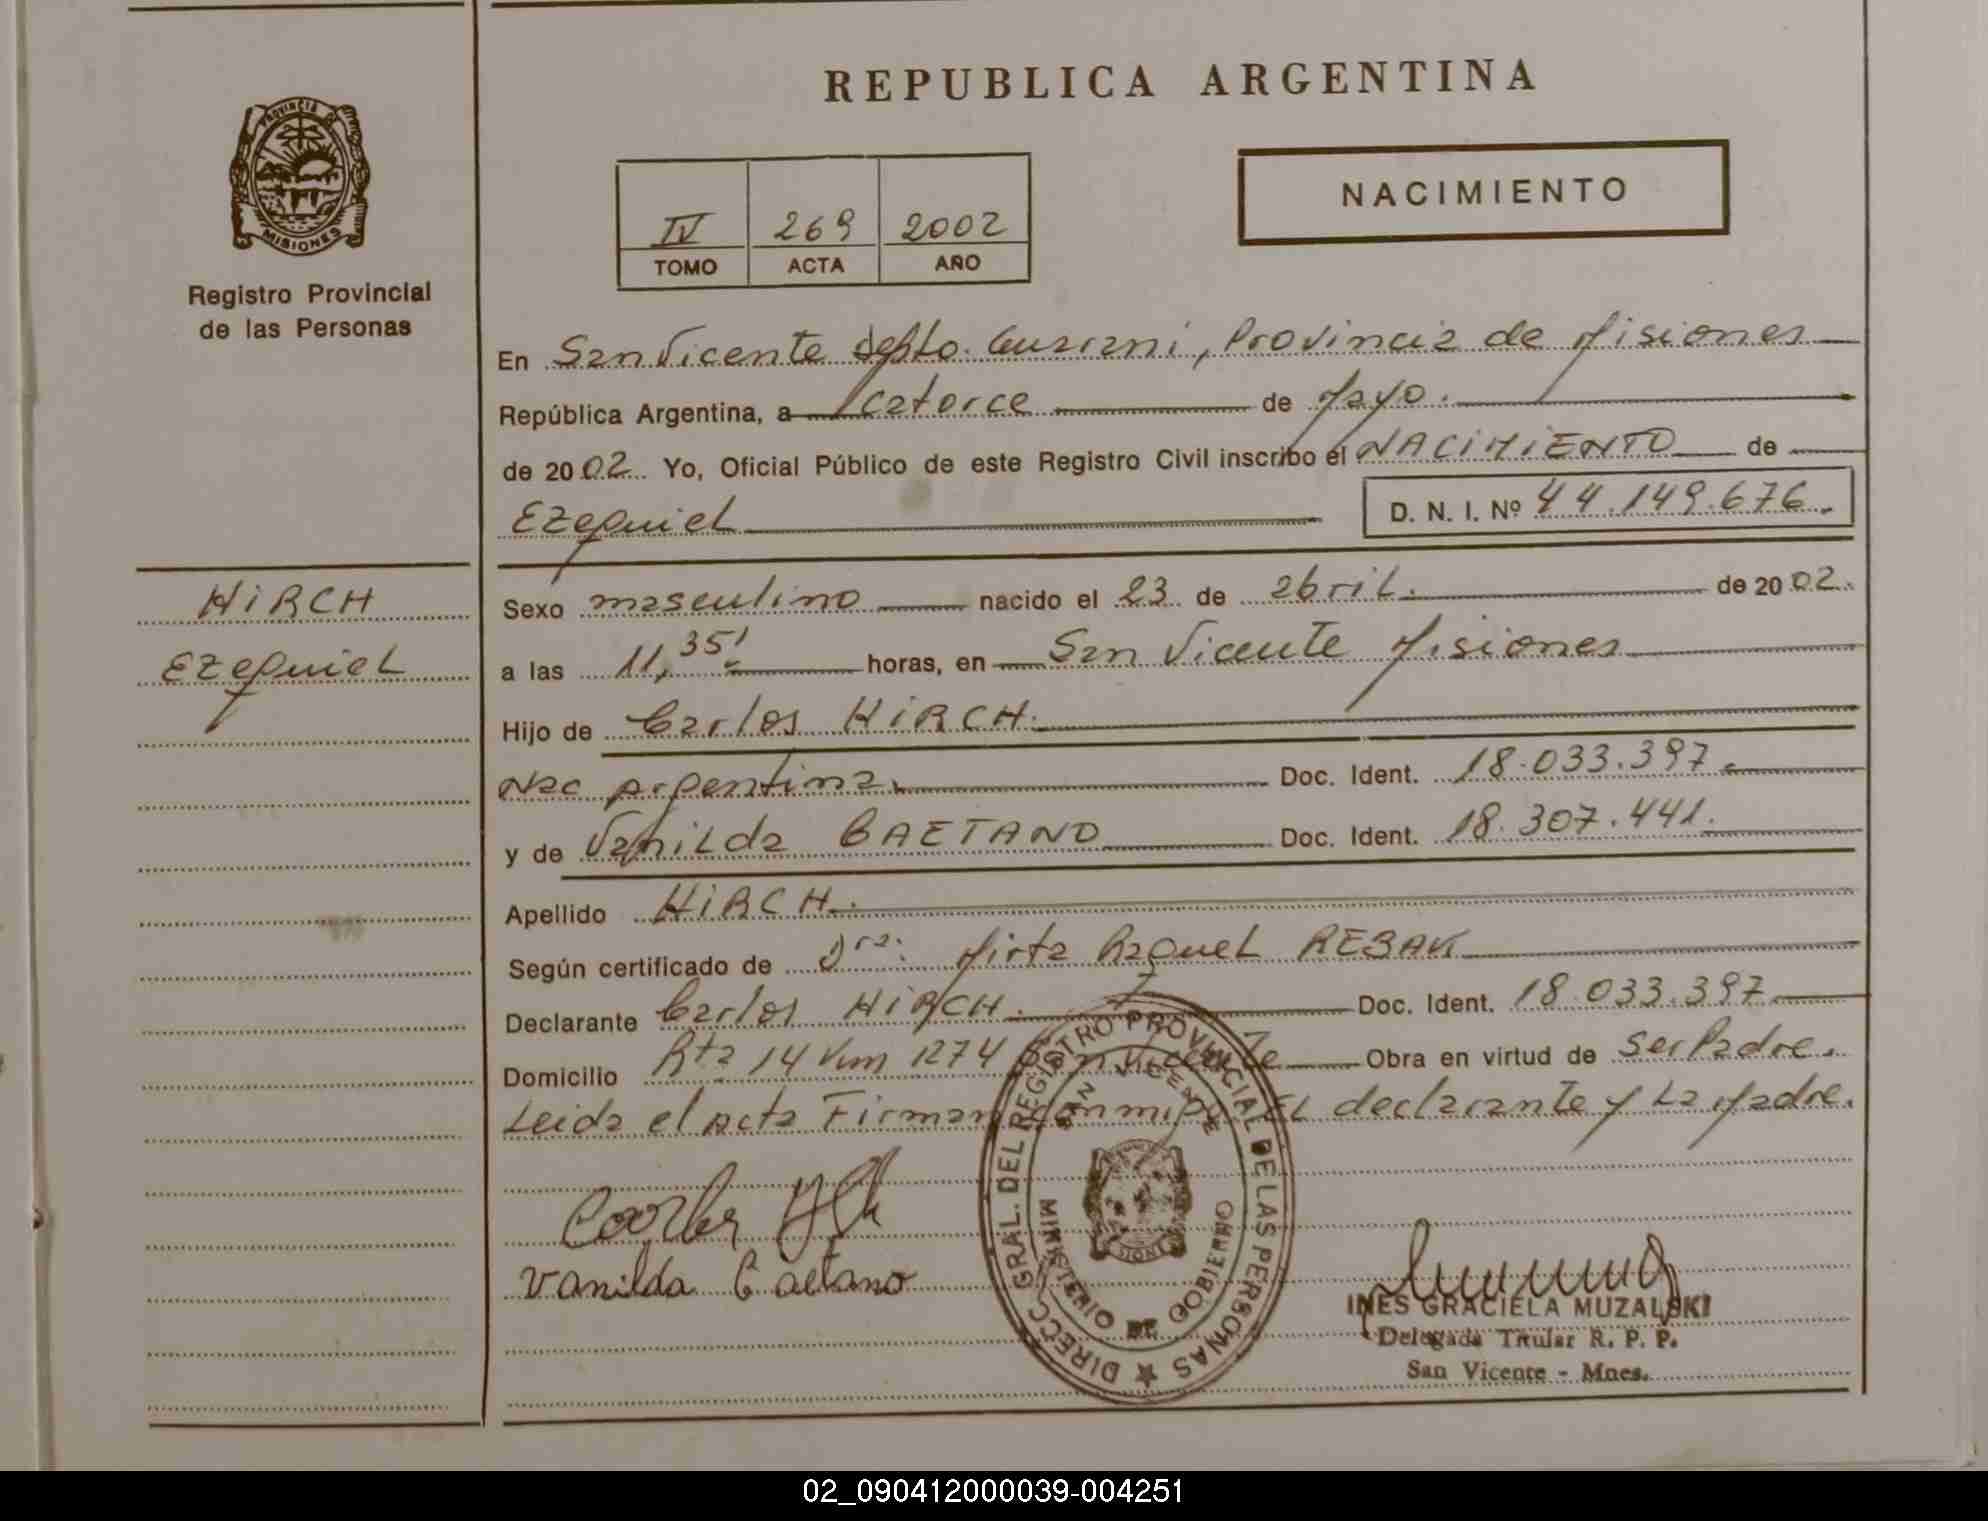 REPUBLICA ARGENTINA
PROVINCIA DE
MISIONES
Registro Provincial
de las Personas
NACIMIENTO
IV 269 2002
TOMO ACTA AÑO
En San Vicente depto. Guarani, Provincia de Misiones
República Argentina, a catorce de Mayo.
de 2002. Yo, Oficial Público de este Registro Civil inscribo el NACIMIENTO de
Ezequiel D. N. I. Nº 44.149.676.
HIRCH
Ezequiel
Sexo masculino nacido el 23 de abril. de 2002.
a las 11,35' horas, en San Vicente Misiones
Hijo de Carlos HIRCH.
Nac Argentina. Doc. Ident. 18.033.397.
y de Vanilda CAETANO Doc. Ident. 18.307.441.
Apellido HIRCH.
Según certificado de Dra. Mirta Raquel REBAK
Declarante Carlos HIRCH. Doc. Ident. 18.033.397
Domicilio Rta 14 Km 1274 San Vicente Obra en virtud de Ser Padre.
Leida el Acta Firman El declarante y La Madre.
Vanilda Caetano
DIRECC. GRAL. DEL REGISTRO PROVINCIAL DE LAS PERSONAS
SAN VICENTE
MINISTERIO DE GOBIERNO
INES GRACIELA MUZALSKI
Delegada Titular R. P. P.
San Vicente - Mnes.
02_090412000039-004251